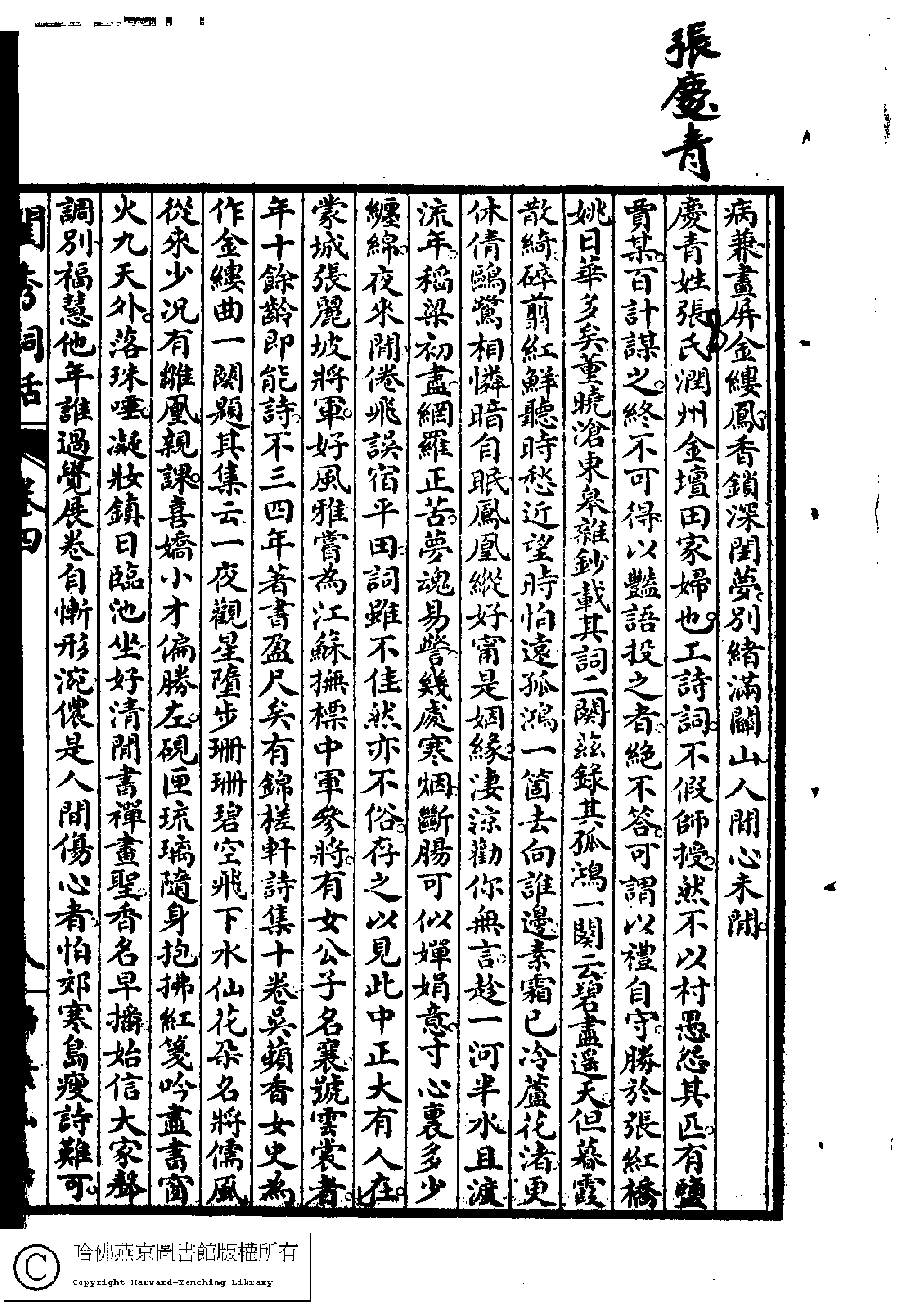 張慶青
病兼畫屏金縷鳳香鎖深閨夢別緒滿關山人閒心未閒
慶青姓張氏潤州金壇田家婦也工詩詞不假師授然不以村愚怨其匹有鹽
賈某百計謀之終不可得以豔語投之者絕不答可謂以禮自守勝於張紅橋
姚日華多矣董曉滄東皋雜鈔載其詞二闋茲錄其孤鴻一闋云碧盡遥天但暮霞
散綺碎剪紅鮮聽時愁近望時怕遠孤鴻一箇去向誰邊素霜已冷蘆花渚更
休倩鷗鷺相憐暗自眠鳳凰縱好甯是姻緣凄涼勸你無言趁一河半水且渡
流年稻粱初盡網羅正苦夢魂易警幾處寒烟斷腸可似嬋娟意寸心裏多少
纏綿夜來閒倦飛誤宿平田詞雖不佳然亦不俗存之以見此中正大有人在
蒙城張麗坡將軍好風雅嘗為江蘇撫標中軍參將有女公子名襄號雲裳者
年十餘齡即能詩不三四年著書盈尺矣有錦槎軒詩集十卷吳蘋香女史為
作金縷曲一闋題其集云一夜觀星墮步珊珊碧空飛下水仙花朵名將儒風
從來少况有雛凰親課喜嬌小才偏勝左硯匣琉璃隨身抱拂紅箋吟盡書窗
火九天外落珠唾凝妝鎮日臨池坐好清閒書禪畫聖香名早播始信大家聲
調別福慧他年誰過覺展卷自慚形涴儂是人間傷心者怕郊寒島瘦詩難可
閨秀詞話 卷四
哈佛燕京圖書館版權所有
Copyright Harvard-Yenching Library